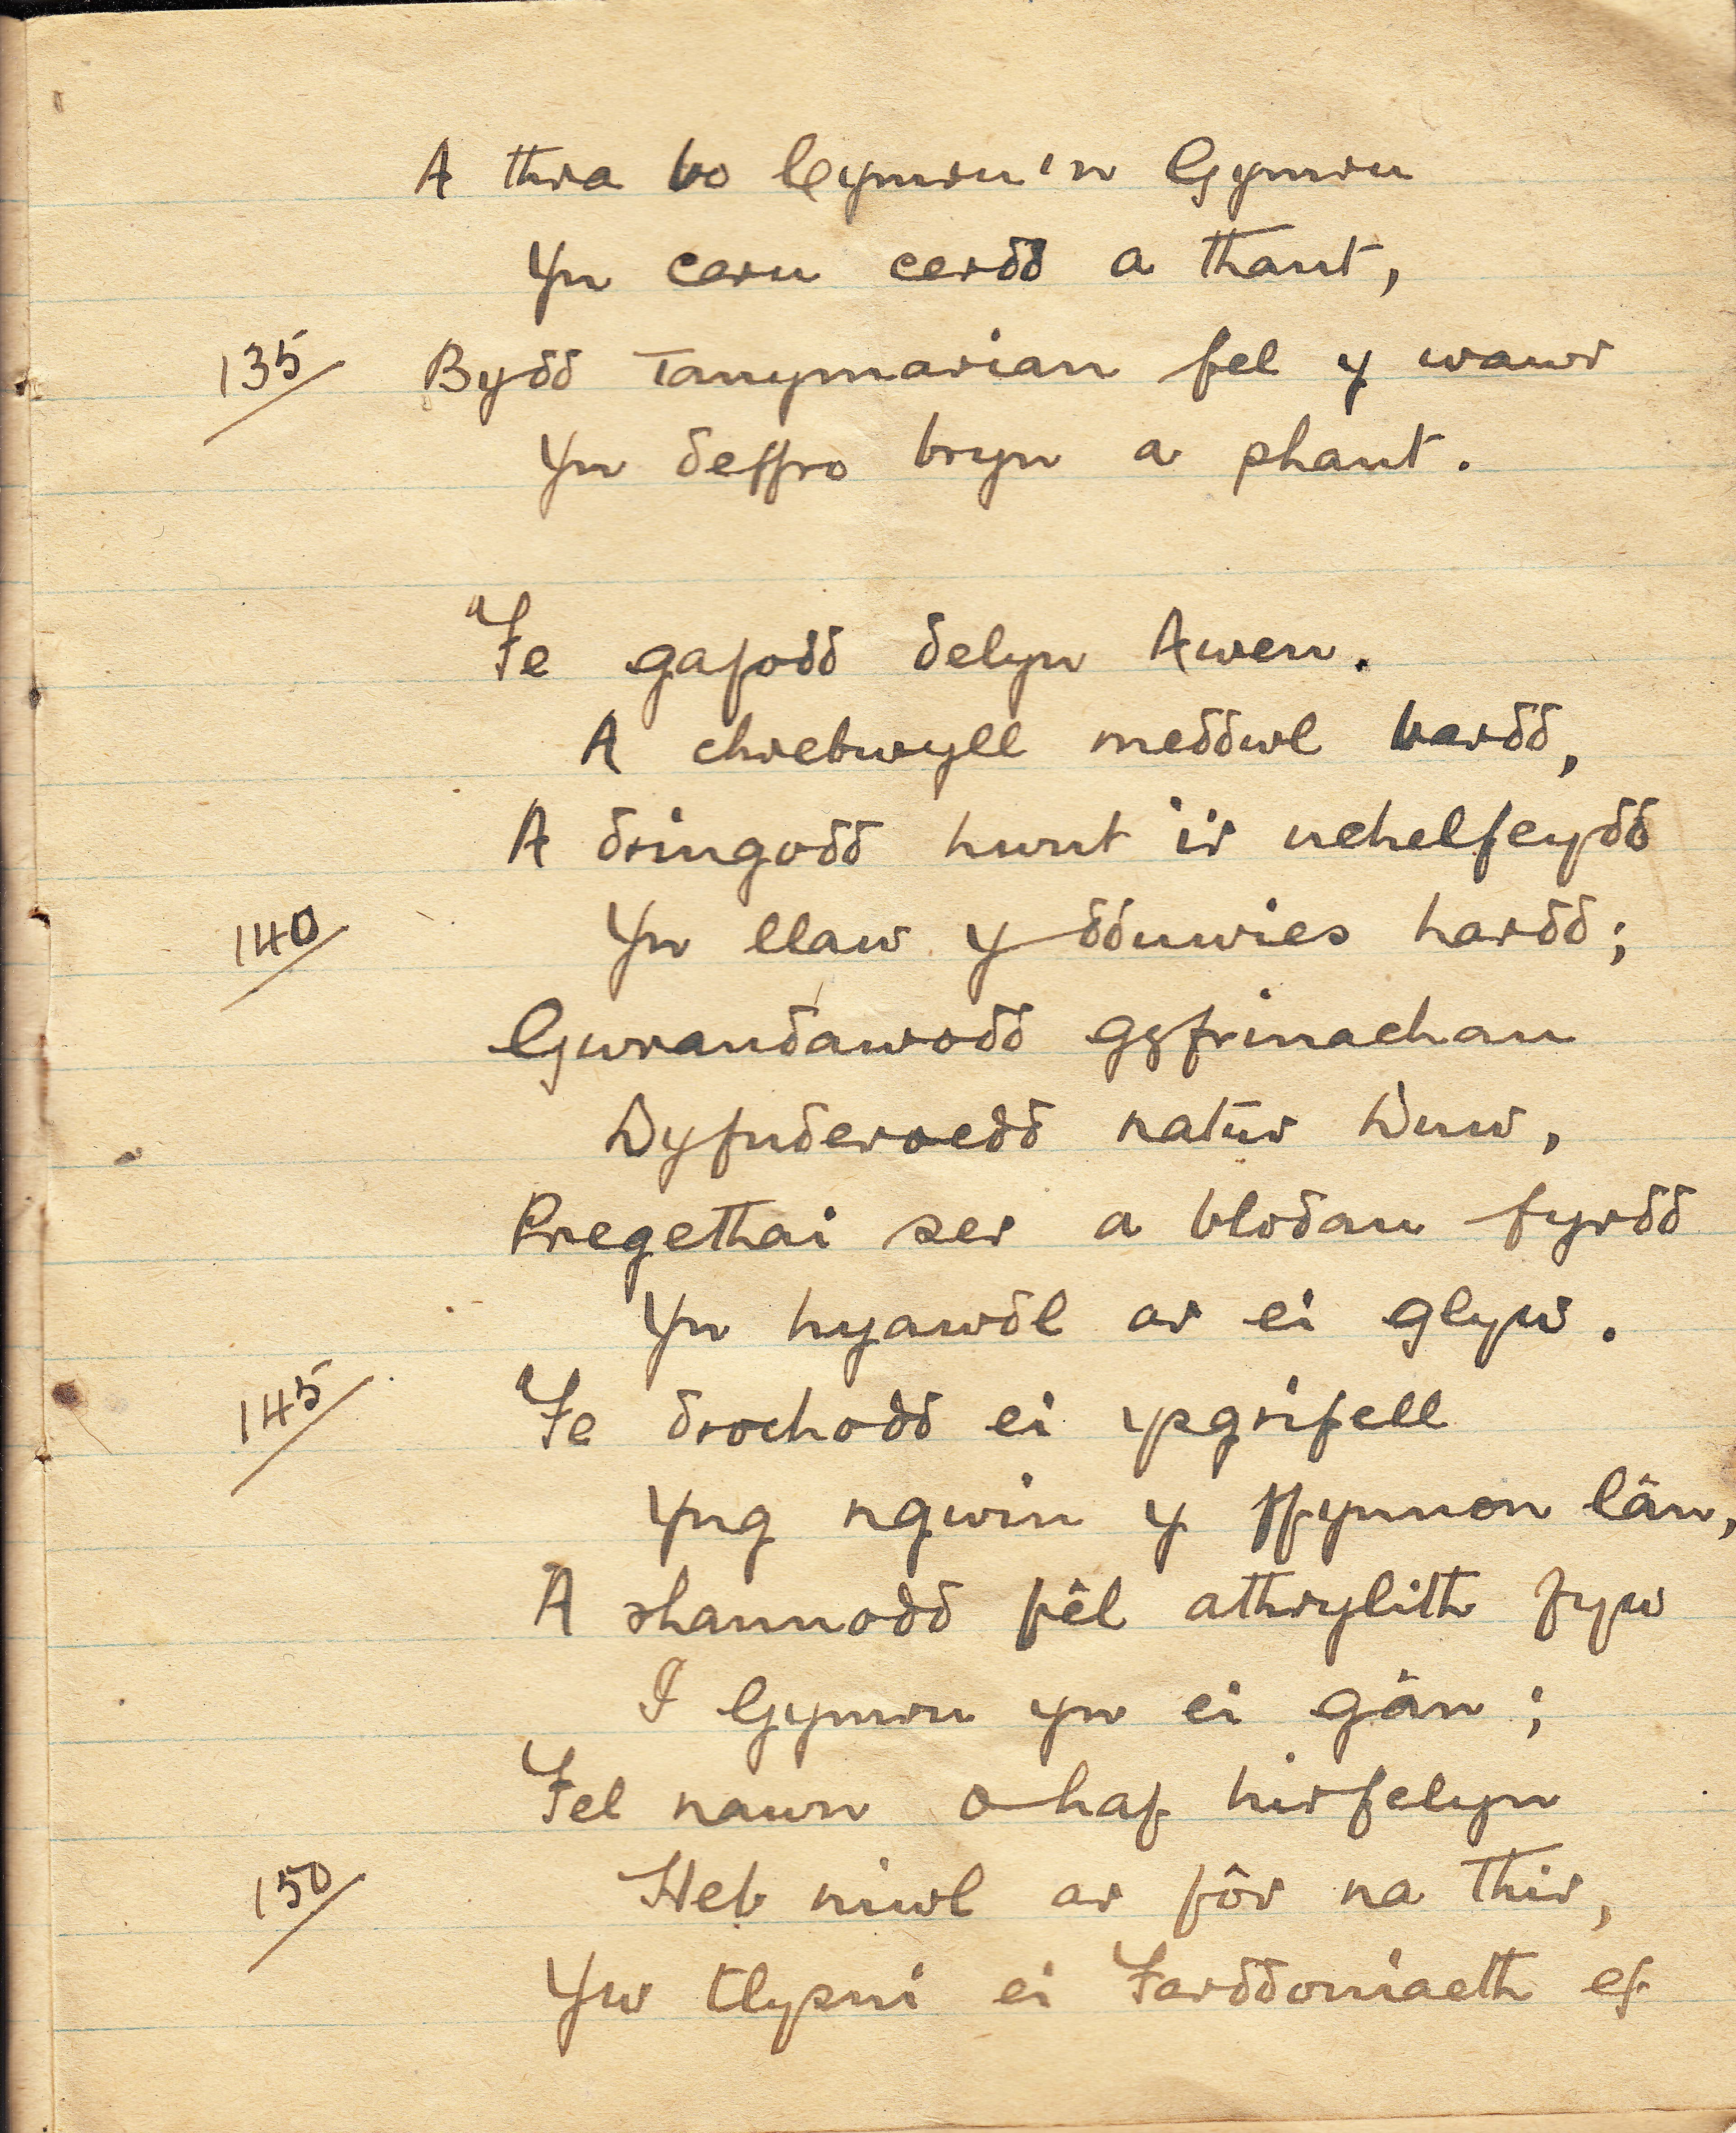 A thra bo Cymru'n Gymru
Yn caru cerdd a thant,
135 Bydd Tanymarian fel y wawr
Yn deffro bryn a phant.
Fe gafodd delyn Awen.
A chrebwyll meddwl bardd,
A dringodd hwnt i'r uchelfeydd
140 Yn llaw y dduwies hardd;
Gwrandawodd gyfrinachau
Dyfnderoedd natur Duw,
Pregethai ser a blodau fyrdd
Yn hyawdl ar ei glyw.
145 Fe drochodd ei ysgrifell
Yng ngwin y ffynnon lân,
A shannodd fêl athrylith fyw
I Gymru yn ei gân;
Fel nawn o haf hirfelyn
150 Heb niwl ar fôr na thir,
Yw tlysni ei farddoniaeth ef